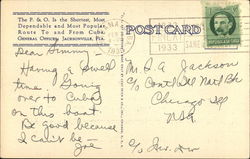 The P. & O. Is the Shortest, Most
Dependable and Most Popular
Route To and From Cuba.
General Offices, Jacksonville, Fla.
POST CARD
1933
Dear Jimmy
Having a swell
time. Going
over to Cuba
on this boat
Be good because
I can't be—
Joe
Mr. J. A. Jackson
c/o Contl Ill Natl Bk
Chicago Ill
USA